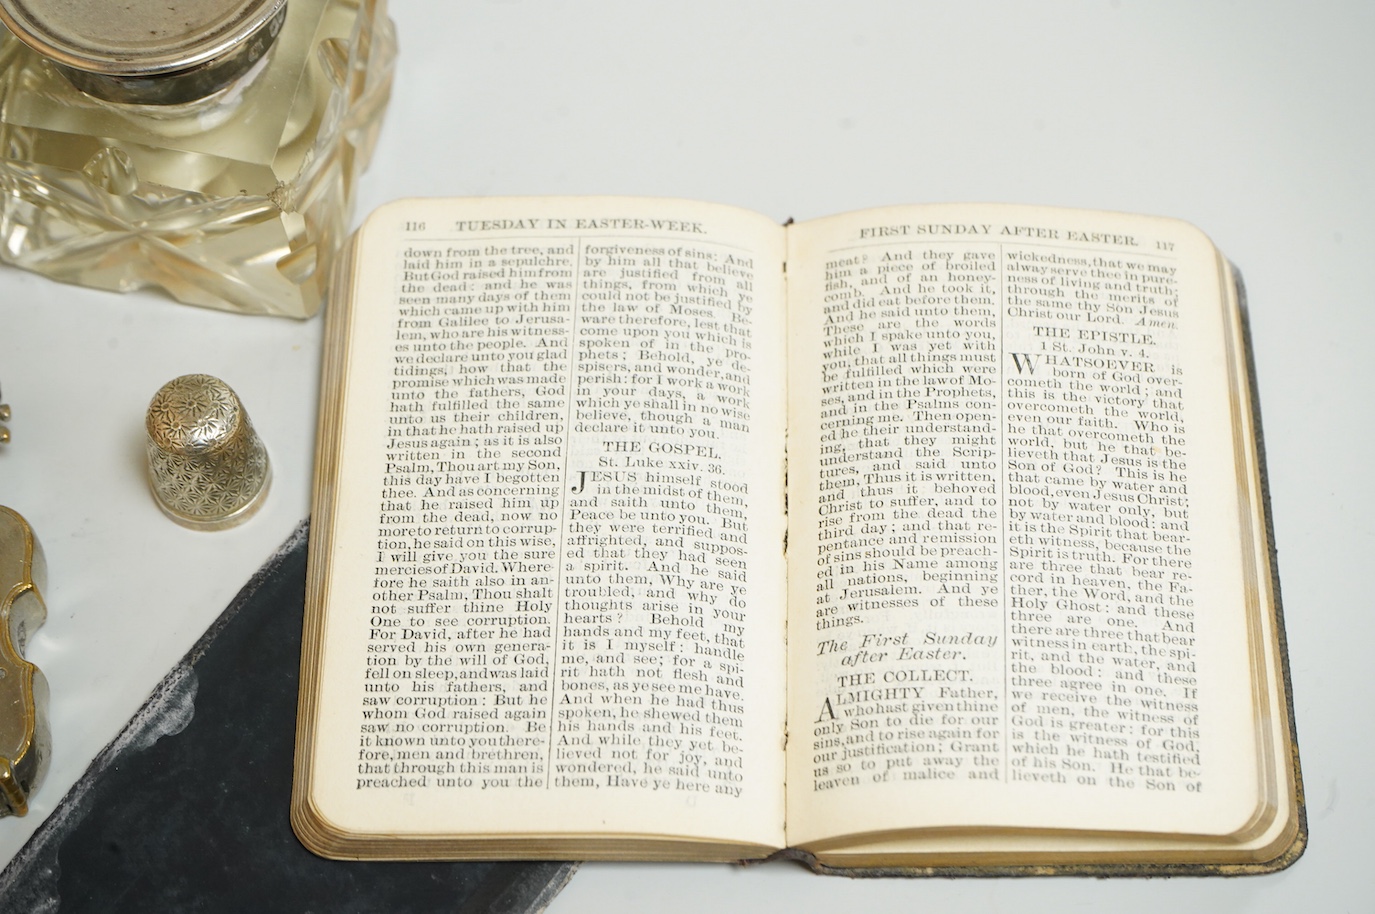 116 TUESDAY IN EASTER-WEEK.
down from the tree, and
laid him in a sepulchre.
But God raised him from
the dead: and he was
seen many days of them
which came up with him
from Galilee to Jerusa-
lem, who are his witness-
es unto the people. And
we declare unto you glad
tidings, how that the
promise which was made
unto the fathers, God
hath fulfilled the same
unto us their children,
in that he hath raised up
Jesus again; as it is also
written in the second
Psalm, Thou art my Son,
this day have I begotten
thee. And as concerning
that he raised him up
from the dead, now no
more to return to corrup-
tion, he said on this wise,
I will give you the sure
mercies of David. Where-
fore he saith also in an-
other Psalm, Thou shalt
not suffer thine Holy
One to see corruption.
For David, after he had
served his own genera-
tion by the will of God,
fell on sleep, and was laid
unto his fathers, and
saw corruption: But he
whom God raised again
saw no corruption. Be
it known unto you there-
fore, men and brethren,
that through this man is
preached unto you the
forgiveness of sins: And
by him all that believe
are justified from all
things, from which ye
could not be justified by
the law of Moses. Be-
ware therefore, lest that
come upon you which is
spoken of in the pro-
phets; Behold, ye de-
spisers, and wonder, and
perish: for I work a work
in your days, a work
which ye shall in no wise
believe, though a man
declare it unto you.
THE GOSPEL.
St. Luke xxiv. 36.
JESUS himself stood
in the midst of them,
and saith unto them,
Peace be unto you. But
they were terrified and
affrighted, and suppos-
ed that they had seen
a spirit. And he said
unto them, Why are ye
troubled, and why do
thoughts arise in your
hearts? Behold my
hands and my feet, that
it is I myself: handle
me, and see; for a spi-
rit hath not flesh and
bones, as ye see me have.
And when he had thus
spoken, he shewed them
his hands and his feet.
And while they yet be-
lieved not for joy, and
wondered, he said unto
them, Have ye here any
FIRST SUNDAY AFTER EASTER. 117
meat? And they gave
him a piece of broiled
fish, and of an honey-
comb. And he took it,
and did eat before them.
And he said unto them,
These are the words
which I spake unto you,
while I was yet with
you, that all things must
be fulfilled which were
written in the law of Mo-
ses, and in the Prophets,
and in the Psalms con-
cerning me. Then open-
ed he their understand-
ing, that they might
understand the Scrip-
tures, and said unto
them, Thus it is written,
and thus it behoved
Christ to suffer, and to
rise from the dead the
third day; and that re-
pentance and remission
of sins should be preach-
ed in his Name among
all nations, beginning
at Jerusalem. And ye
are witnesses of these
things.
The First Sunday
after Easter.
THE COLLECT.
ALMIGHTY Father,
who hast given thine
only Son to die for our
sins, and to rise again for
our justification; Grant
us so to put away the
leaven of malice and
wickedness, that we may
alway serve thee in pure-
ness of living and truth;
through the merits of
the same thy Son Jesus
Christ our Lord. Amen.
THE EPISTLE.
1 St. John v. 4.
WHATSOEVER is
born of God over-
cometh the world; and
this is the victory that
overcometh the world,
even our faith. Who is
he that overcometh the
world, but he that be-
lieveth that Jesus is the
Son of God? This is he
that came by water and
blood, even Jesus Christ;
not by water only, but
by water and blood: and
it is the Spirit that bear-
eth witness, because the
Spirit is truth. For there
are three that bear re-
cord in heaven, the Fa-
ther, the Word, and the
Holy Ghost: and these
three are one. And
there are three that bear
witness in earth, the spi-
rit, and the water, and
the blood: and these
three agree in one. If
we receive the witness
of men, the witness of
God is greater: for this
is the witness of God,
which he hath testified
of his Son. He that be-
lieveth on the Son of